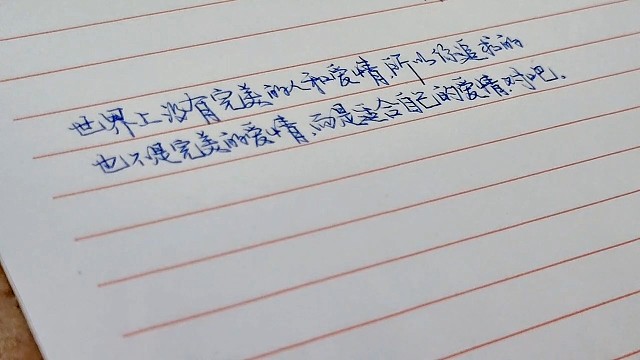 世界上没有完美的人和爱情,所以你追求的
也不是完美的爱情,而是适合自己的爱情对吧.